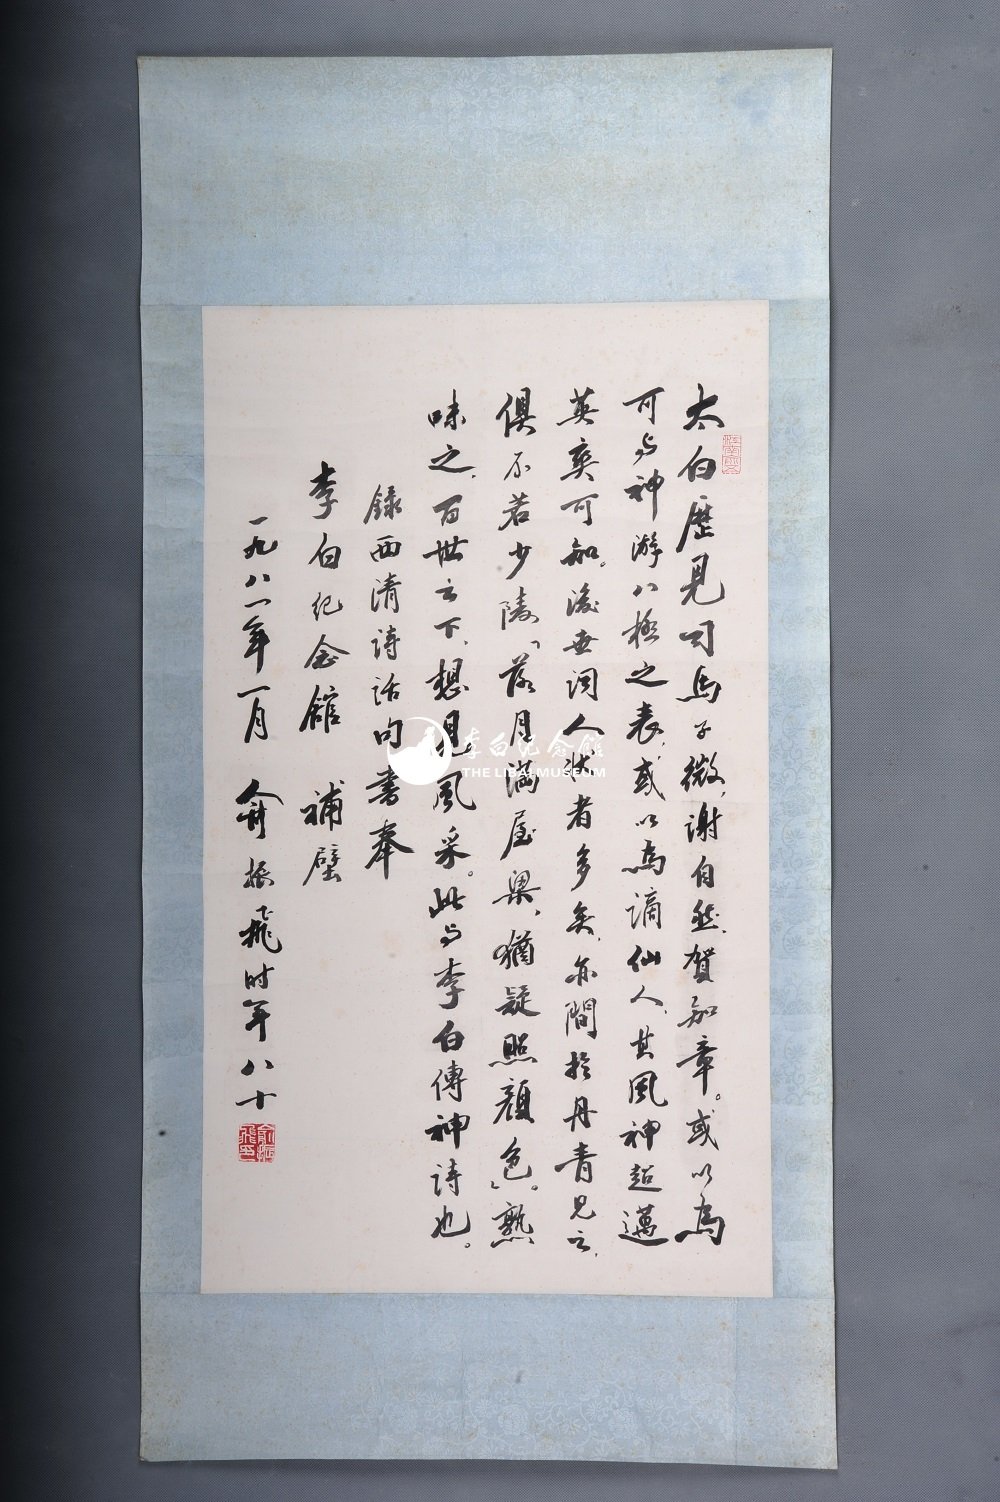 太白歷見司馬子微、謝自然、賀知章。或以為
可与神游八極之表、或以為謫仙人、其風神超邁
英爽可知。後世詞人狀者多矣、亦間於丹青見之、
俱不若少陵「落月滿屋梁、猶疑照顏色」。熟
味之、百世之下、想見風采。此与李白傳神詩也。
錄西清詩話句書奉
李白紀念館 補壁
一九八一年一月 俞振飛时年八十
俞振飛印
李白纪念馆
THE LIBAI MUSEUM